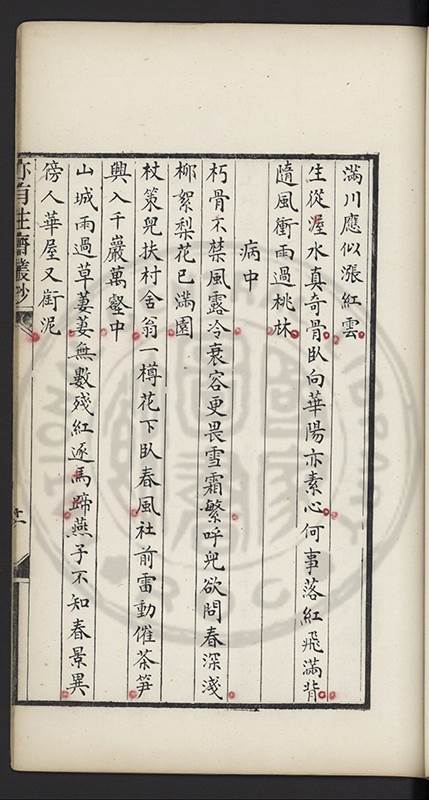 滿川應似漲紅雲
生從渥水真奇骨臥向華陽亦素心何事落紅飛滿背
隨風衝雨過桃林
病中
朽骨不禁風露冷衰容更畏雪霜繁呼兒欲問春深淺
柳絮梨花已滿園
杖策兒扶村舍翁一樽花下臥春風社前雷動催茶笋
興入千巖萬壑中
山城雨過草萋萋無數殘紅逐馬蹄燕子不知春景異
傍人華屋又銜泥
亦有生齋叢鈔